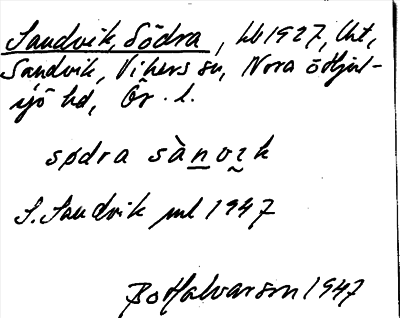 Sandvik, Södra, hb 1927, lht,
Sandvik, Vikers sn, Nora o Hjul-
sjö hd, Ör. l.
sødra sànvɪk
S. Sandvik jml 1947
Bo Halvarson 1947